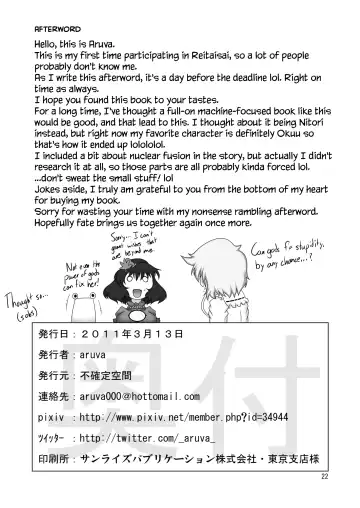 AFTERWORD
Hello, this is Aruva.
This is my first time participating in Reitaisai, so a lot of people
probably don't know me.
As I write this afterword, it's a day before the deadline lol. Right on
time as always.
I hope you found this book to your tastes.
For a long time, I've thought a full-on machine-focused book like this
would be good, and that lead to this. I thought about it being Nitori
instead, but right now my favorite character is definitely Okuu so
that's how it ended up lolololol.
I included a bit about nuclear fusion in the story, but actually I didn't
research it at all, so those parts are all probably kinda forced lol.
...don't sweat the small stuff/ lol
Jokes aside, I truly am grateful to you from the bottom of my heart
for buying my book.
Sorry for wasting your time with my nonsense rambling afterword.
Hopefully fate brings us together again once more.
Thought so...
(sobs)
Not even the
power of gods
can fix her!
Sorry... I can't
grant wishes that
are beyond me.
Can gods fix stupidity,
by any chance...?
奥付
発行日：２０１１年３月１３日
発行者：aruva
発行元：不確定空間
連絡先：aruva000@hottomail.com
pixiv ：http://www.pixiv.net/member.php?id=34944
ﾂｲｯﾀｰ ：http://twitter.com/_aruva_
印刷所：サンライズパブリケーション株式会社・東京支店様
22